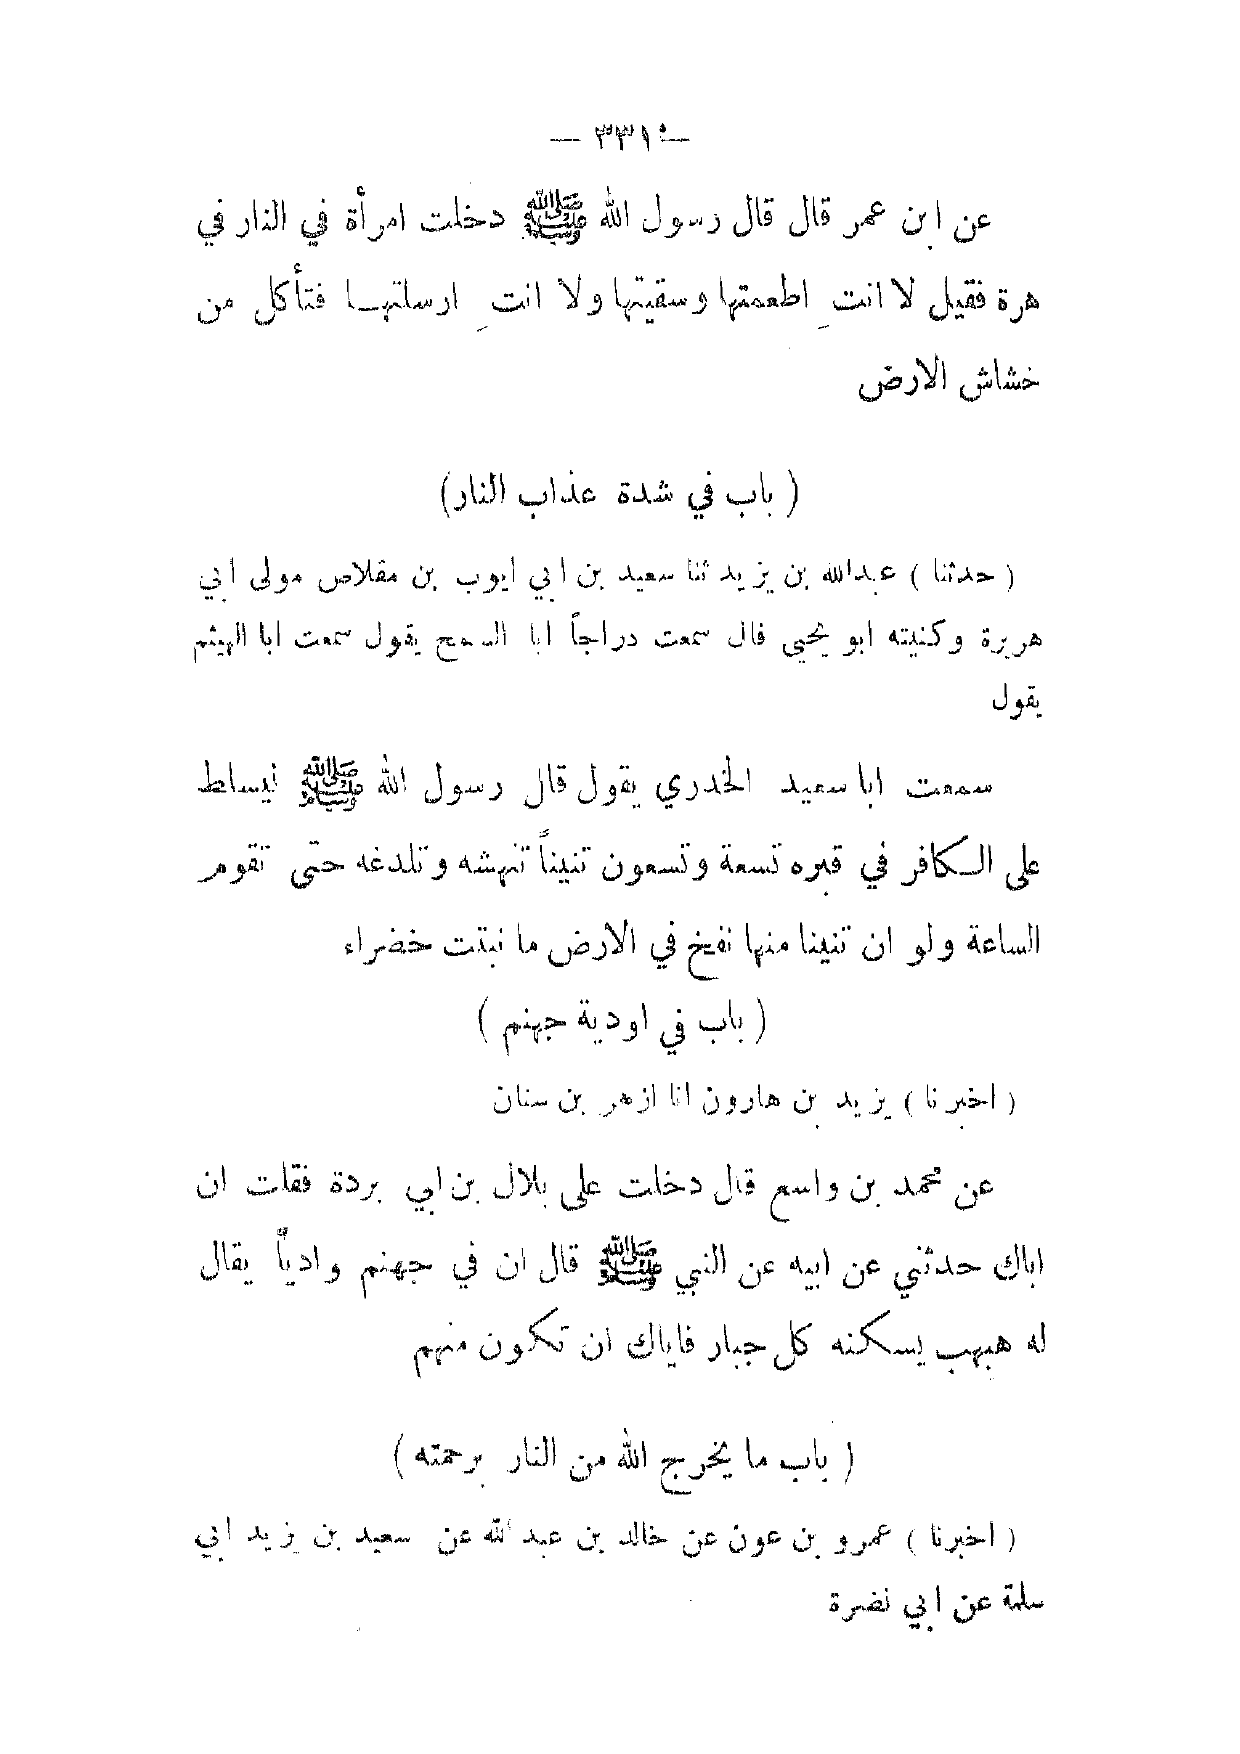 — ٣٣١ —
عن ابن عمر قال قال رسول الله ﷺ دخلت امرأة في النار في
هرة فقيل لا انتِ اطعمتها وسقيتها ولا انتِ ارسلتهـا فتأكل من
خشاش الارض
( باب في شدة عذاب النار)
( حدثنا ) عبدالله بن يزيد ثنا سعيد بن ابي ايوب بن مقلاص مولى ابي
هريرة وكنيته ابو يحيى قال سمعت دراجاً ابا السمح يقول سمعت ابا الهيثم
يقول
سمعت ابا سعيد الخدري يقول قال رسول الله ﷺ ليسلط
على الـكافر في قبره تسعة وتسعون تنيناً تنهشه وتلدغه حتى تقوم
الساعة ولو ان تنينا منها نفخ في الارض ما نبتت خضراء
( باب في اودية جهنم )
( اخبرنا ) يزيد بن هارون انا ازهر بن سنان
عن محمد بن واسع قال دخلت على بلال بن ابي بردة فقلت ان
اباك حدثني عن ابيه عن النبي ﷺ قال ان في جهنم وادياً يقال
له هبهب يسكنه كل جبار فاياك ان تكون منهم
( باب ما يخرج الله من النار برحمته )
( اخبرنا ) عمرو بن عون عن خالد بن عبد الله عن سعيد بن يزيد ابي
سلمة عن ابي نضرة